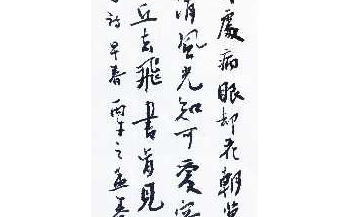 處病眼却花朝
晴風光知可愛容
丘去飛書肯見
詩早春丙午之孟春